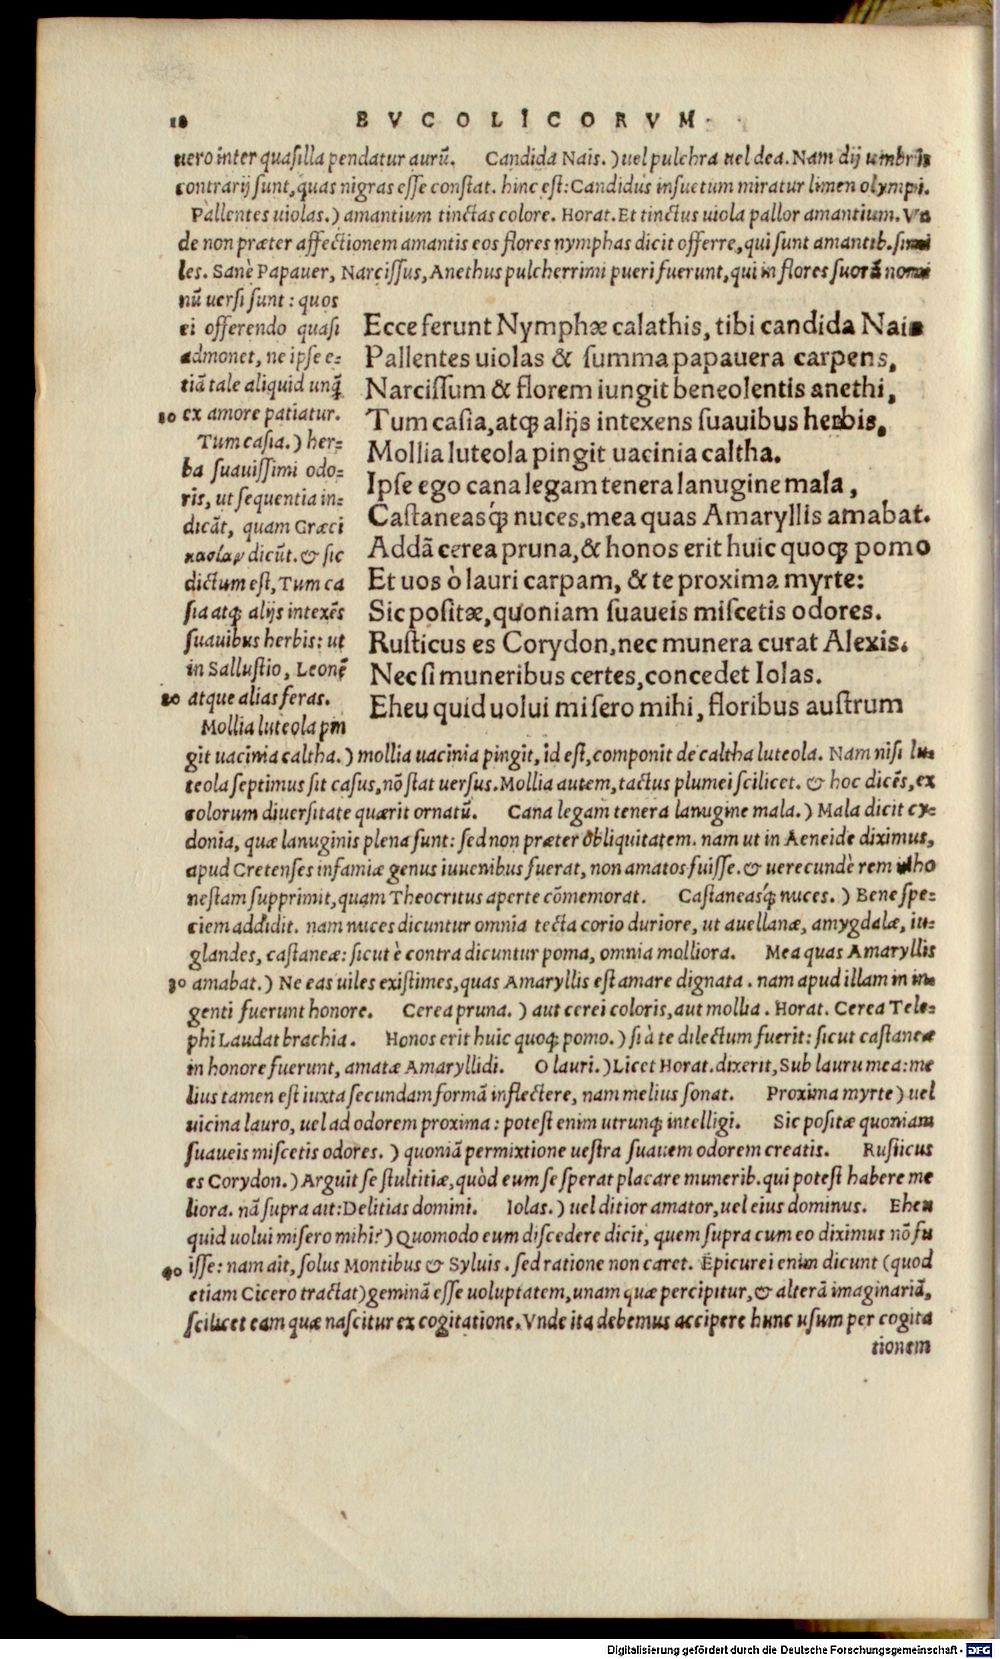 18 BVCOLICORVM
uero inter quasilla pendatur aurũ. Candida Nais.) uel pulchra uel dea. Nam dij umbris
contrarij sunt, quas nigras esse constat. hinc est: Candidus insuetum miratur limen olympi.
Pallentes uiolas.) amantium tinctas colore. Horat. Et tinctus uiola pallor amantium. Vn
de non præter affectionem amantis eos flores nymphas dicit offerre, qui sunt amantib. simi
les. Sanè Papauer, Narcissus, Anethus pulcherrimi pueri fuerunt, qui in flores suorũ nomi
nũ uersi sunt: quos
ei offerendo quasi
admonet, ne ipse e-
tiã tale aliquid unq̃
10 ex amore patiatur.
Tum casia.) her-
ba suauissimi odo-
ris, ut sequentia in-
dicãt, quam Græci
κασίαν dicũt. & sic
dictum est, Tum ca
sia atq; alijs intexẽs
suauibus herbis: ut
in Sallustio, Leonẽ
20 atque alias feras.
Mollia luteola pin
Ecce ferunt Nymphæ calathis, tibi candida Nais
Pallentes uiolas & summa papauera carpens,
Narcissum & florem iungit beneolentis anethi,
Tum casia, atq; alijs intexens suauibus herbis,
Mollia luteola pingit uacinia caltha.
Ipse ego cana legam tenera lanugine mala,
Castaneasq́; nuces, mea quas Amaryllis amabat.
Addã cerea pruna, & honos erit huic quoq; pomo
Et uos ò lauri carpam, & te proxima myrte:
Sic positæ, quoniam suaueis miscetis odores.
Rusticus es Corydon, nec munera curat Alexis.
Nec si muneribus certes, concedet Iolas.
Eheu quid uolui misero mihi, floribus austrum
git uacinia caltha.) mollia uacinia pingit, id est, componit de caltha luteola. Nam nisi lu-
teola septimus sit casus, nõ stat uersus. Mollia autem, tactus plumei scilicet. & hoc dicẽs, ex
colorum diuersitate quærit ornatũ. Cana legam tenera lanugine mala.) Mala dicit cy-
donia, quæ lanuginis plena sunt: sed non præter obliquitatem. nam ut in Aeneide diximus,
apud Cretenses infamiæ genus iuuenibus fuerat, non amatos fuisse. & uerecundè rem inho
nestam supprimit, quam Theocritus aperte cõmemorat. Castaneasq́; nuces.) Bene spe-
ciem addidit. nam nuces dicuntur omnia tecta corio duriore, ut auellanæ, amygdalæ, iu-
glandes, castaneæ: sicut è contra dicuntur poma, omnia molliora. Mea quas Amaryllis
30 amabat.) Ne eas uiles existimes, quas Amaryllis est amare dignata. nam apud illam in in-
genti fuerunt honore. Cerea pruna.) aut cerei coloris, aut mollia. Horat. Cerea Tele-
phi Laudat brachia. Honos erit huic quoq; pomo.) si à te dilectum fuerit: sicut castaneæ
in honore fuerunt, amatæ Amaryllidi. O lauri.) Licet Horat. dixerit, Sub lauru mea: me
lius tamen est iuxta secundam formã inflectere, nam melius sonat. Proxima myrte) uel
uicina lauro, uel ad odorem proxima: potest enim utrunq; intelligi. Sic positæ quoniam
suaueis miscetis odores.) quoniã permixtione uestra suauem odorem creatis. Rusticus
es Corydon.) Arguit se stultitiæ, quòd eum se sperat placare munerib. qui potest habere me
liora. nã supra ait: Delitias domini. Iolas.) uel ditior amator, uel eius dominus. Eheu
quid uolui misero mihi?) Quomodo eum discedere dicit, quem supra cum eo diximus nõ fu
40 isse: nam ait, solus Montibus & Syluis. sed ratione non caret. Epicurei enim dicunt (quod
etiam Cicero tractat) geminã esse uoluptatem, unam quæ percipitur, & alterã imaginariã,
scilicet eam quæ nascitur ex cogitatione. Vnde ita debemus accipere hunc usum per cogita
tionem
Digitalisierung gefördert durch die Deutsche Forschungsgemeinschaft - DFG